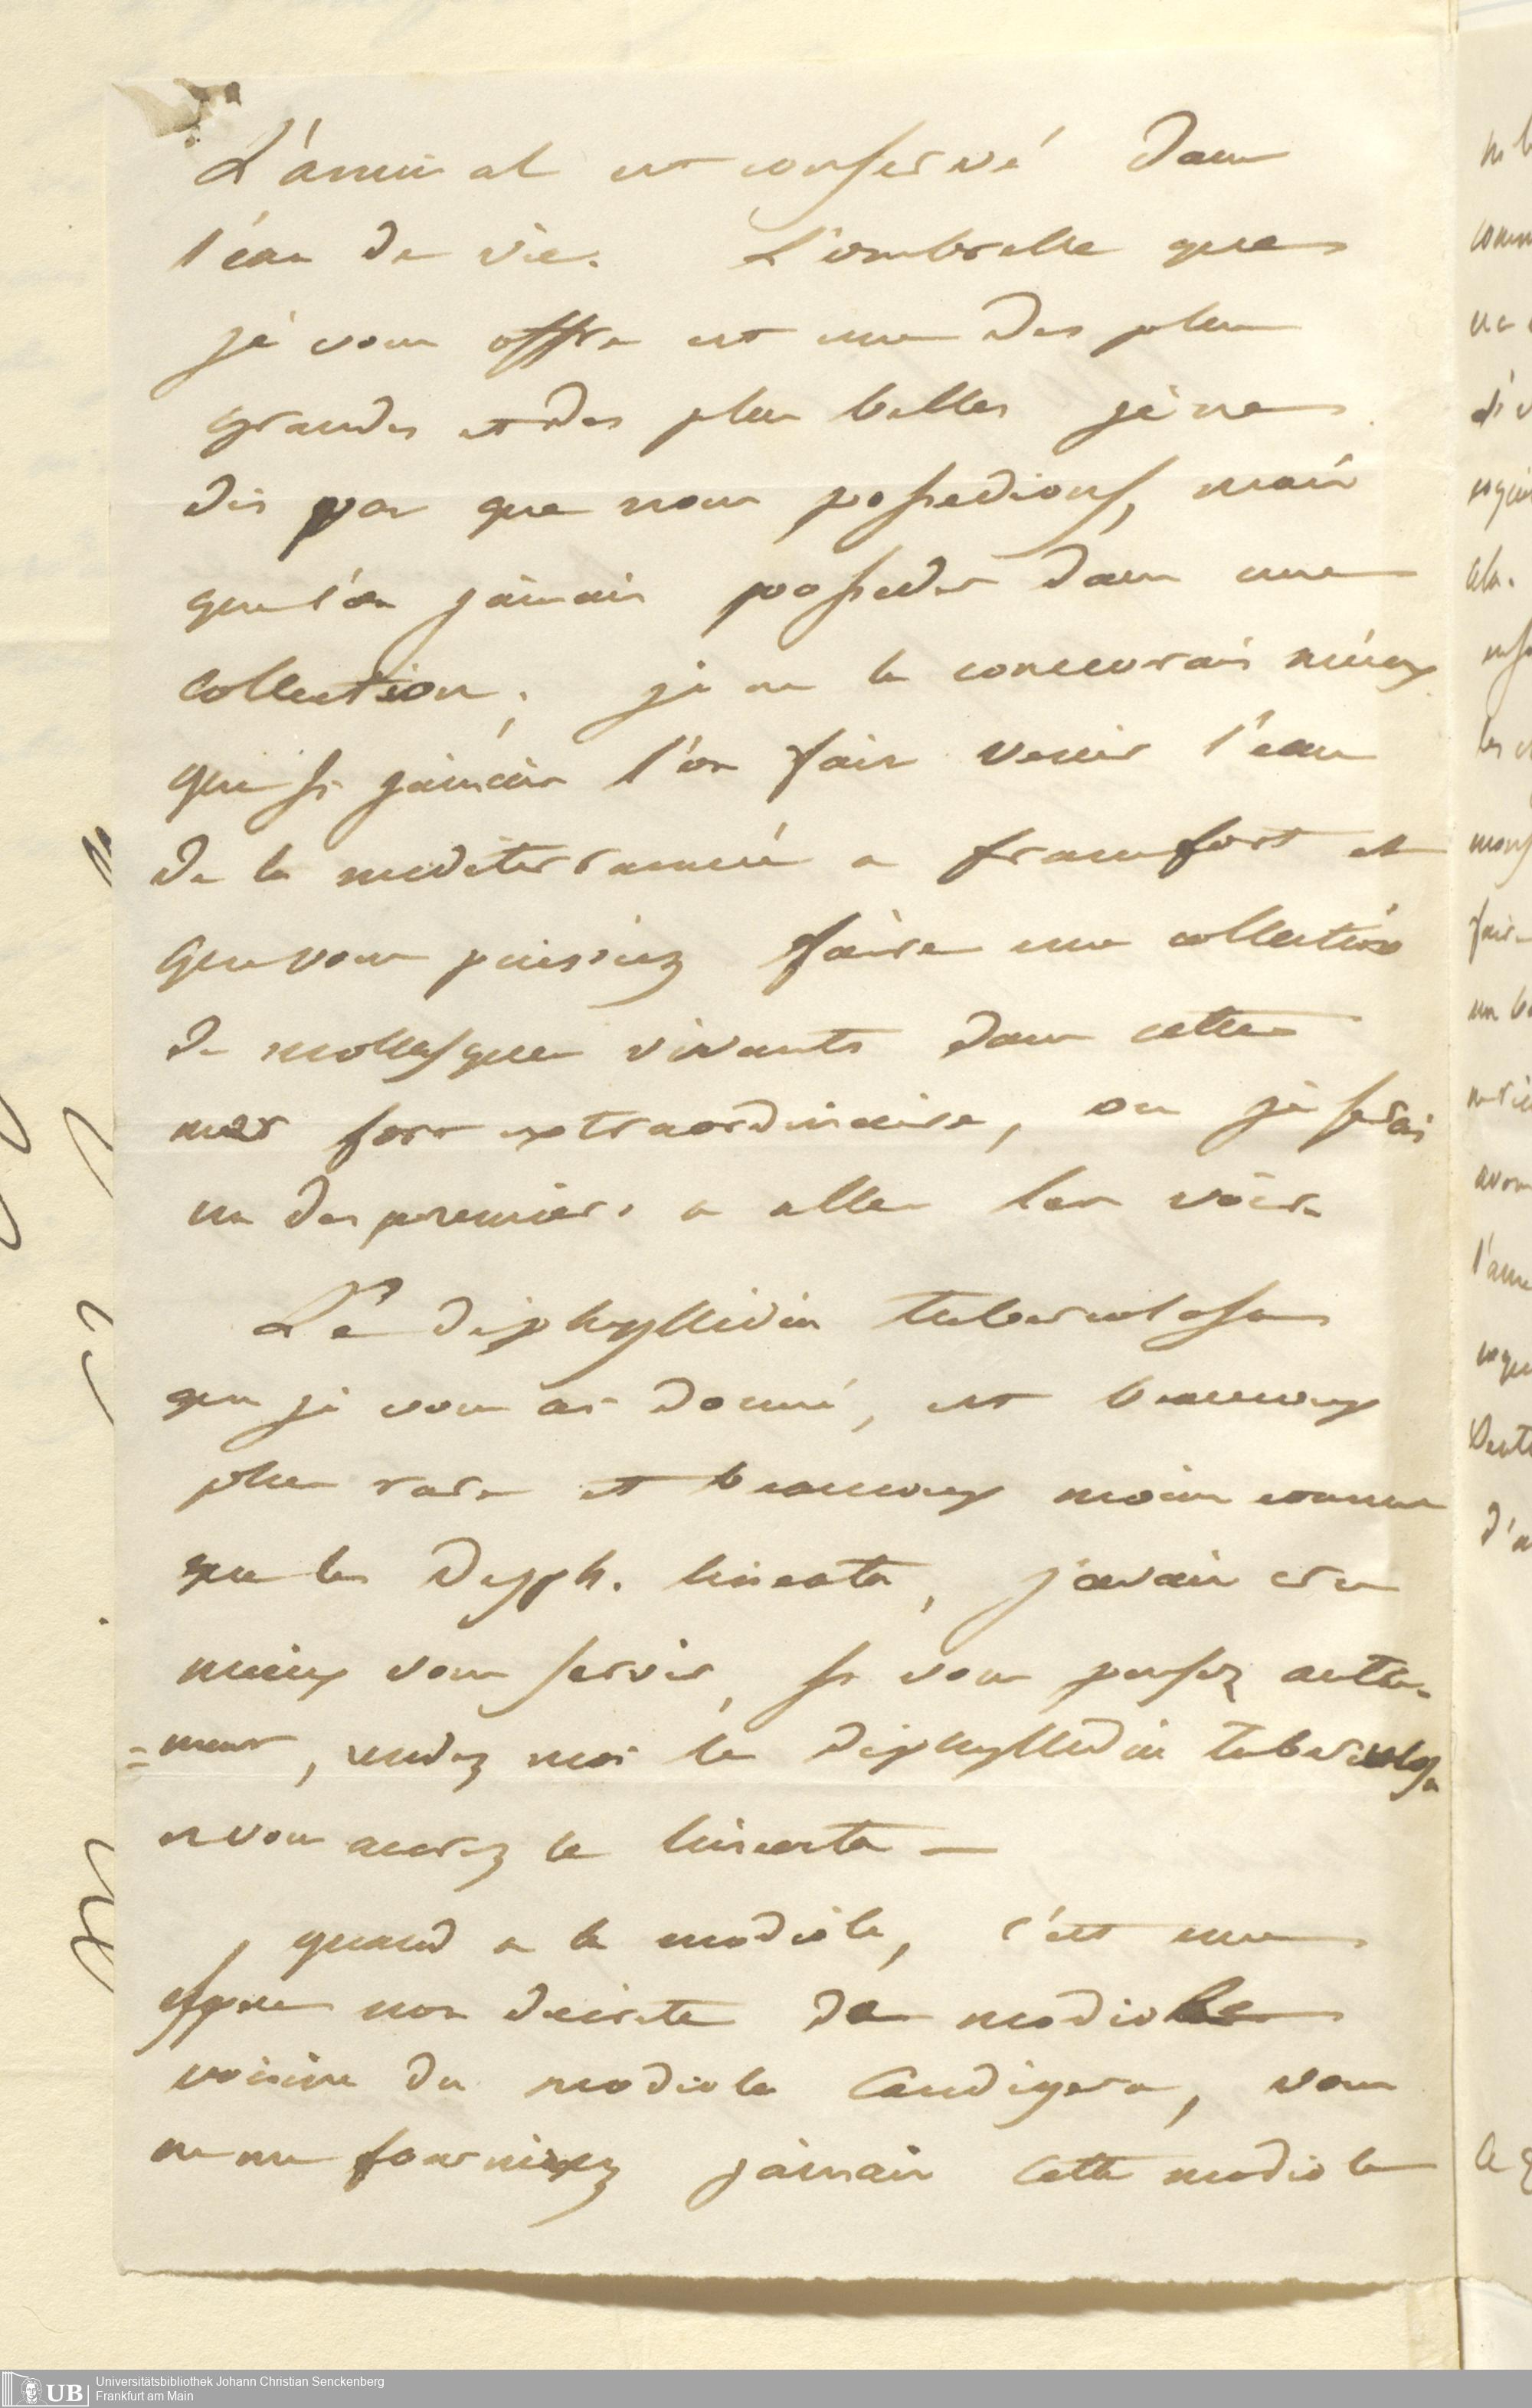 L'animal est conservé dans
l'eau de vie. L'ombrelle que
je vous offre est une des plus
grandes et des plus belles je ne
dis pas que nous possedions, mais
que l'on jamais posseder dans une
collection; je ne le concevrais mieux
que si jamais l'on fait venir l'eau
de la mediterrannée a francfort et
que vous puissiez faire une collection
de mollusques vivants dans cette
mer fort extraordinaire, ou je serai
un des premiers a aller les voir.
La diphyllidia tuberculosa
que je vous ai donné, est beaucoup
plus rare et beaucoup moins connue
que la Dyph. lineata, j'avais cru
mieux vous servir, si vous pensez autre-
=ment, rendez moi la diphyllidia tuberculosa
et vous aurez la lineata —
quand a la modiole, c'est une
espece non decrite de modiole
voisine du modiola , vous
ne me fournirez jamais cette modiole
Universitätsbibliothek Johann Christian Senckenberg
Frankfurt am Main
UB